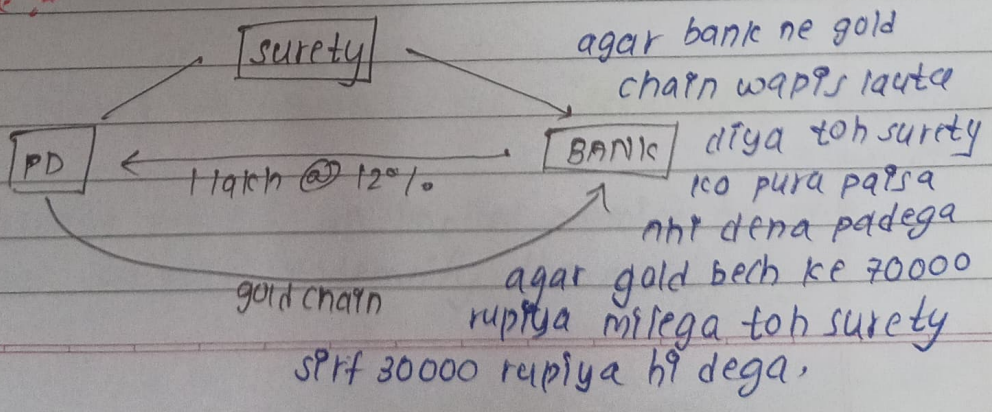 surety
PD
BANK
1 lakh @ 12%
gold chain
agar bank ne gold
chain wapis lauta
diya toh surety
ko pura paisa
nhi dena padega
agar gold bech ke 70000
rupiya milega toh surety
sirf 30000 rupiya hi dega.